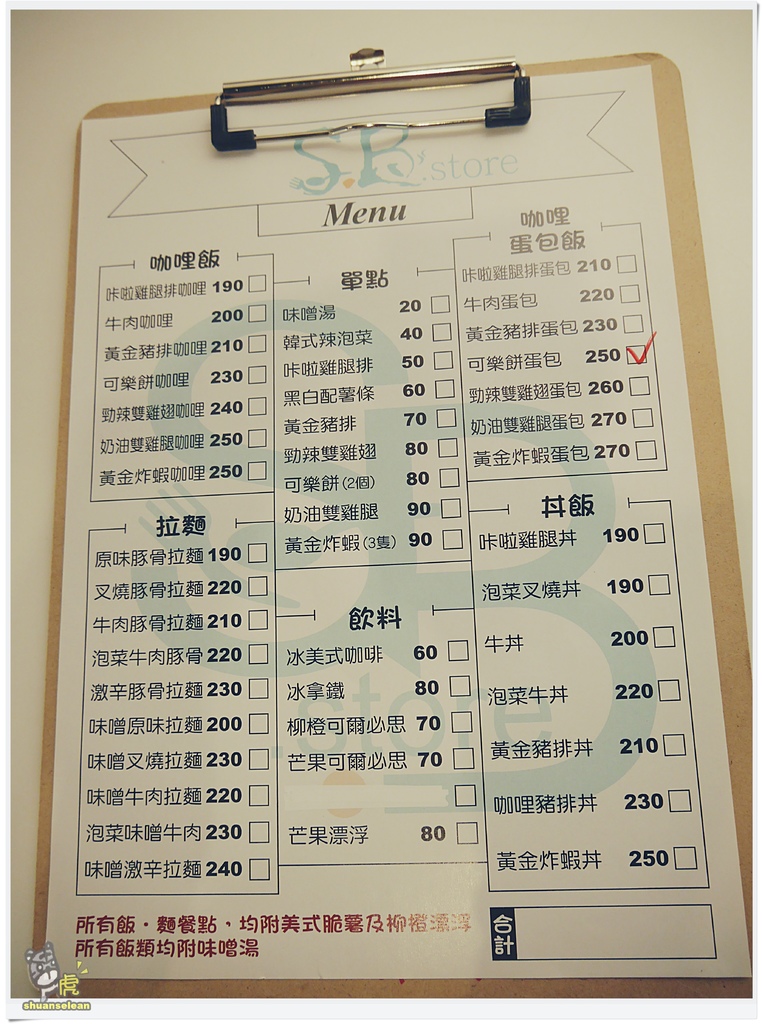 S.B's.store
Menu
咖哩飯
咔啦雞腿排咖哩 190
牛肉咖哩 200
黃金豬排咖哩 210
可樂餅咖哩 230
勁辣雙雞翅咖哩 240
奶油雙雞腿咖哩 250
黃金炸蝦咖哩 250
拉麵
原味豚骨拉麵 190
叉燒豚骨拉麵 220
牛肉豚骨拉麵 210
泡菜牛肉豚骨 220
激辛豚骨拉麵 230
味噌原味拉麵 200
味噌叉燒拉麵 230
味噌牛肉拉麵 220
泡菜味噌牛肉 230
味噌激辛拉麵 240
單點
味噌湯 20
韓式辣泡菜 40
咔啦雞腿排 50
黑白配薯條 60
黃金豬排 70
勁辣雙雞翅 80
可樂餅(2個) 80
奶油雙雞腿 90
黃金炸蝦(3隻) 90
飲料
冰美式咖啡 60
冰拿鐵 80
柳橙可爾必思 70
芒果可爾必思 70
芒果漂浮 80
咖哩
蛋包飯
咔啦雞腿排蛋包 210
牛肉蛋包 220
黃金豬排蛋包 230
可樂餅蛋包 250
勁辣雙雞翅蛋包 260
奶油雙雞腿蛋包 270
黃金炸蝦蛋包 270
丼飯
咔啦雞腿丼 190
泡菜叉燒丼 190
牛丼 200
泡菜牛丼 220
黃金豬排丼 210
咖哩豬排丼 230
黃金炸蝦丼 250
所有飯・麵餐點，均附美式脆薯及柳橙漂浮
所有飯類均附味噌湯
合計
虎
shuanselean